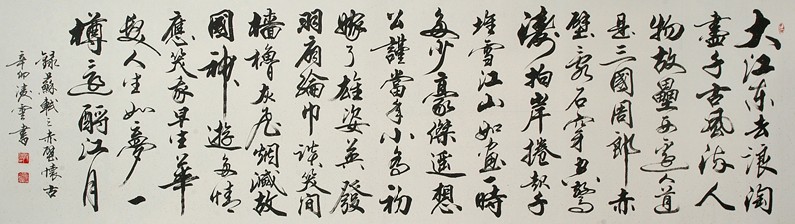 大江东去浪淘
盡千古風流人
物故壘西邊人道
是三國周郎赤
壁亂石穿空驚
濤拍岸捲起千
堆雪江山如畫一時
多少豪傑遥想
公謹當年小喬初
嫁了雄姿英發
羽扇綸巾談笑間
檣櫓灰飛烟滅故
國神遊多情
應笑我早生華
髮人生如夢一
樽還酹江月
錄蘇軾之赤壁懷古
辛卯凌雲書